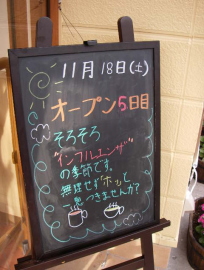 11月18日(土)
オープン5日目
そろそろ
"インフルエンザ"
の季節です。
無理せず"ホッ"と
一息つきませんか?